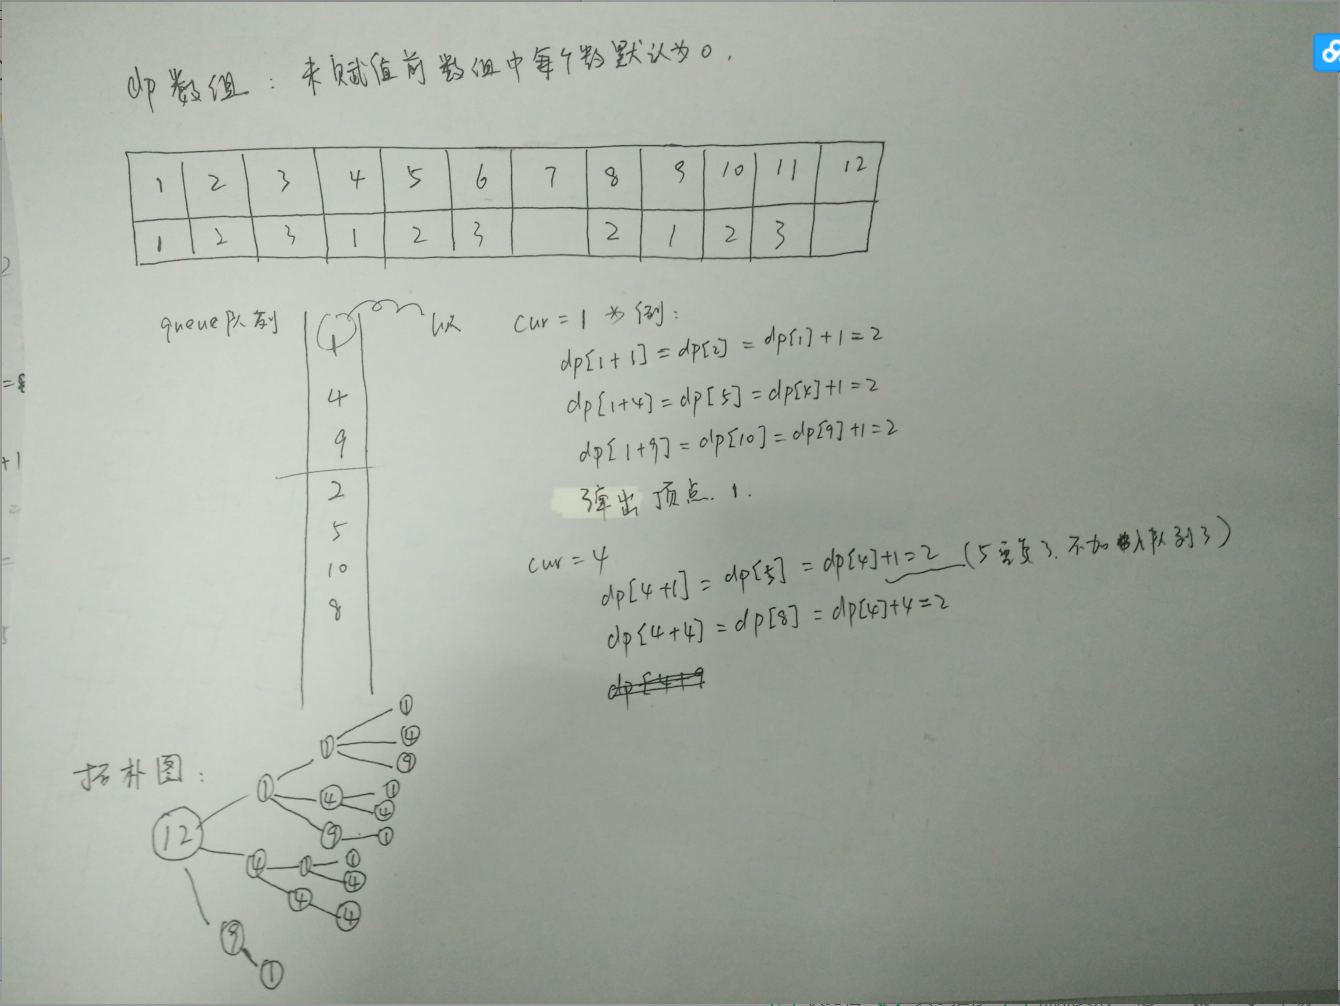 dp数组：未赋值前数组中每个数默认为0.
1 2 3 4 5 6 7 8 9 10 11 12
1 2 3 1 2 3 2 1 2 3
queue队列
1
4
9
2
5
10
8
cur = 1为例：
dp[1+1] = dp[2] = dp[1]+1=2
dp[1+4]=dp[5]=dp[4]+1=2
dp[1+9]=dp[10]=dp[9]+1=2
弹出顶点.1.
cur = 4
dp[4+1] = dp[5] = dp[4]+1=2 (5重复了.不加入队列了)
dp[4+4] = dp[8] = dp[4]+4=2
dp[4+9
拓扑图：
12
1 1 1
4
9
4 1
4
9 1
4 1 1
4
4 4
9 1